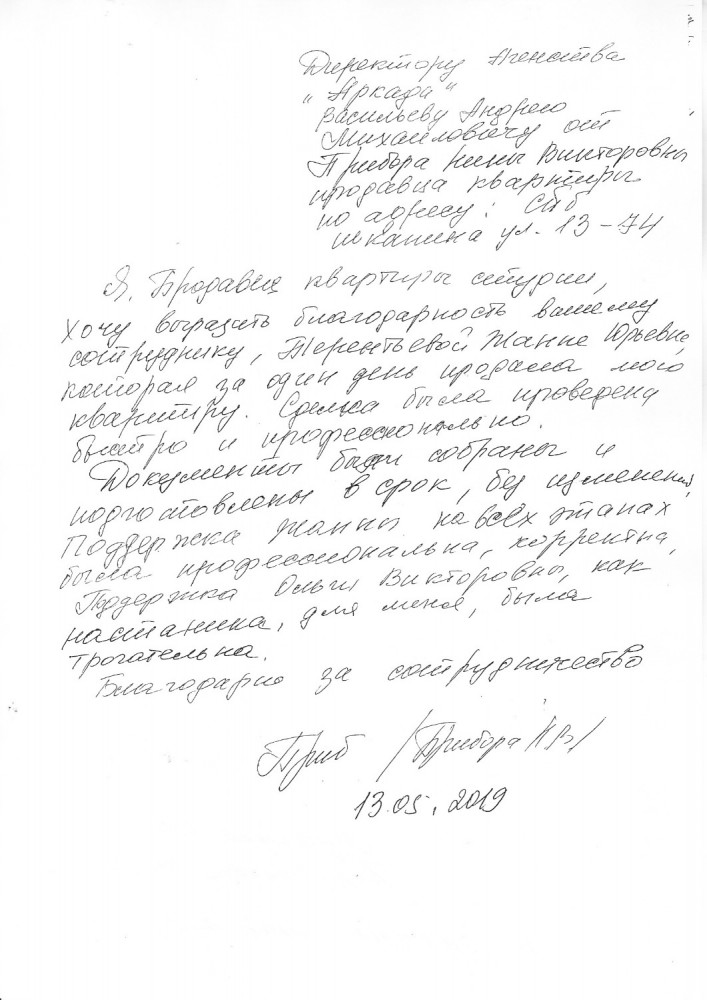 Директору Агенства
"Аркада"
Васильеву Андрею
Михайловичу от
Прибора Нины Викторовны
продавца квартиры
по адресу: СПб
ул. 13-74
Я, Продавец квартиры студии,
хочу выразить благодарность вашему
сотруднику, Терентьевой Жанне Юрьевне,
которая за один день продала мою
квартиру. Сделка была проведена
быстро и профессионально.
Документы были собраны и
подготовлены в срок, без изменений,
Поддержка Жанны на всех этапах
была профессиональна, корректна,
Поддержка Ольги Викторовны, как
настаника, для меня, была
трогательна.
Благодарю за сотрудничество
Приб /Прибора Н.В./
13.05.2019